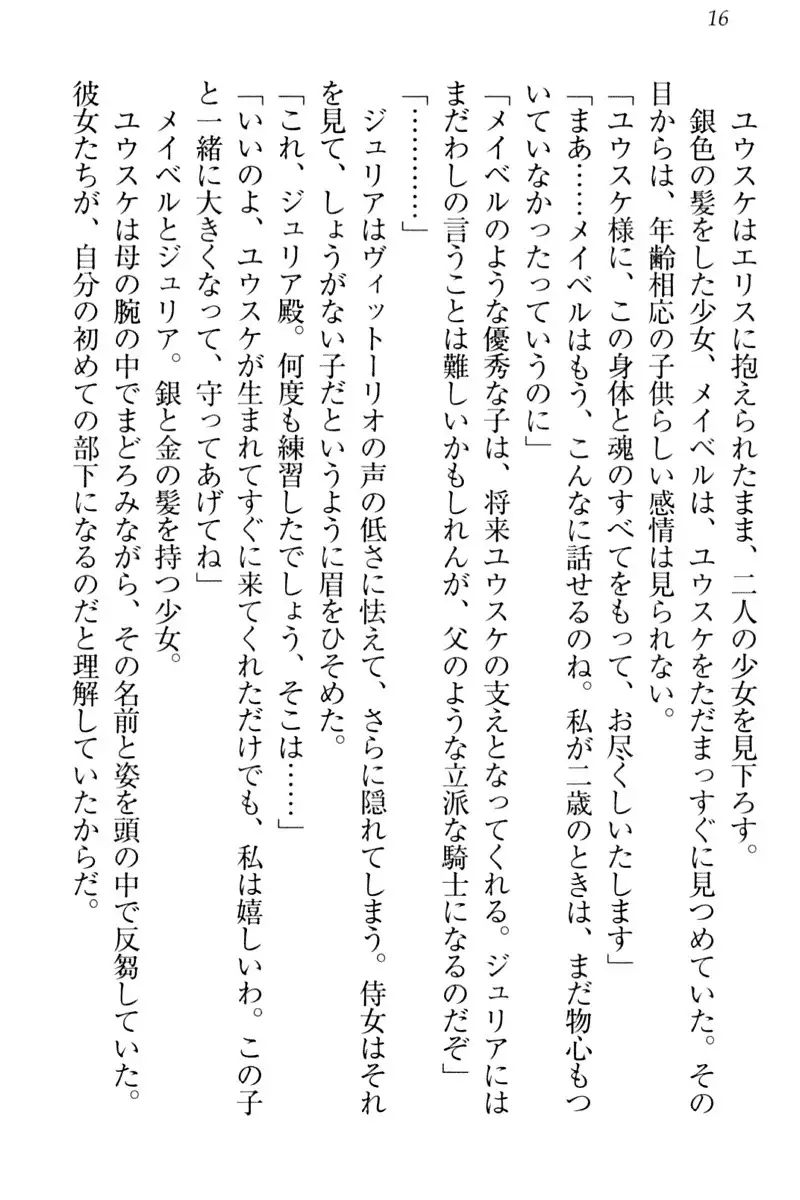 16
ユウスケはエリスに抱えられたまま、二人の少女を見下ろす。
銀色の髪をした少女、メイベルは、ユウスケをただまっすぐに見つめていた。その
目からは、年齢相応の子供らしい感情は見られない。
「ユウスケ様に、この身体と魂のすべてをもって、お尽くしいたします」
「まあ……メイベルはもう、こんなに話せるのね。私が二歳のときは、まだ物心もつ
いていなかったっていうのに」
「メイベルのような優秀な子は、将来ユウスケの支えとなってくれる。ジュリアには
まだわしの言うことは難しいかもしれんが、父のような立派な騎士になるのだぞ」
「…………」
ジュリアはヴィットーリオの声の低さに怯えて、さらに隠れてしまう。侍女はそれ
を見て、しょうがない子だというように眉をひそめた。
「これ、ジュリア殿。何度も練習したでしょう、そこは……」
「いいのよ、ユウスケが生まれてすぐに来てくれただけでも、私は嬉しいわ。この子
と一緒に大きくなって、守ってあげてね」
メイベルとジュリア。銀と金の髪を持つ少女。
ユウスケは母の腕の中でまどろみながら、その名前と姿を頭の中で反芻していた。
彼女たちが、自分の初めての部下になるのだと理解していたからだ。